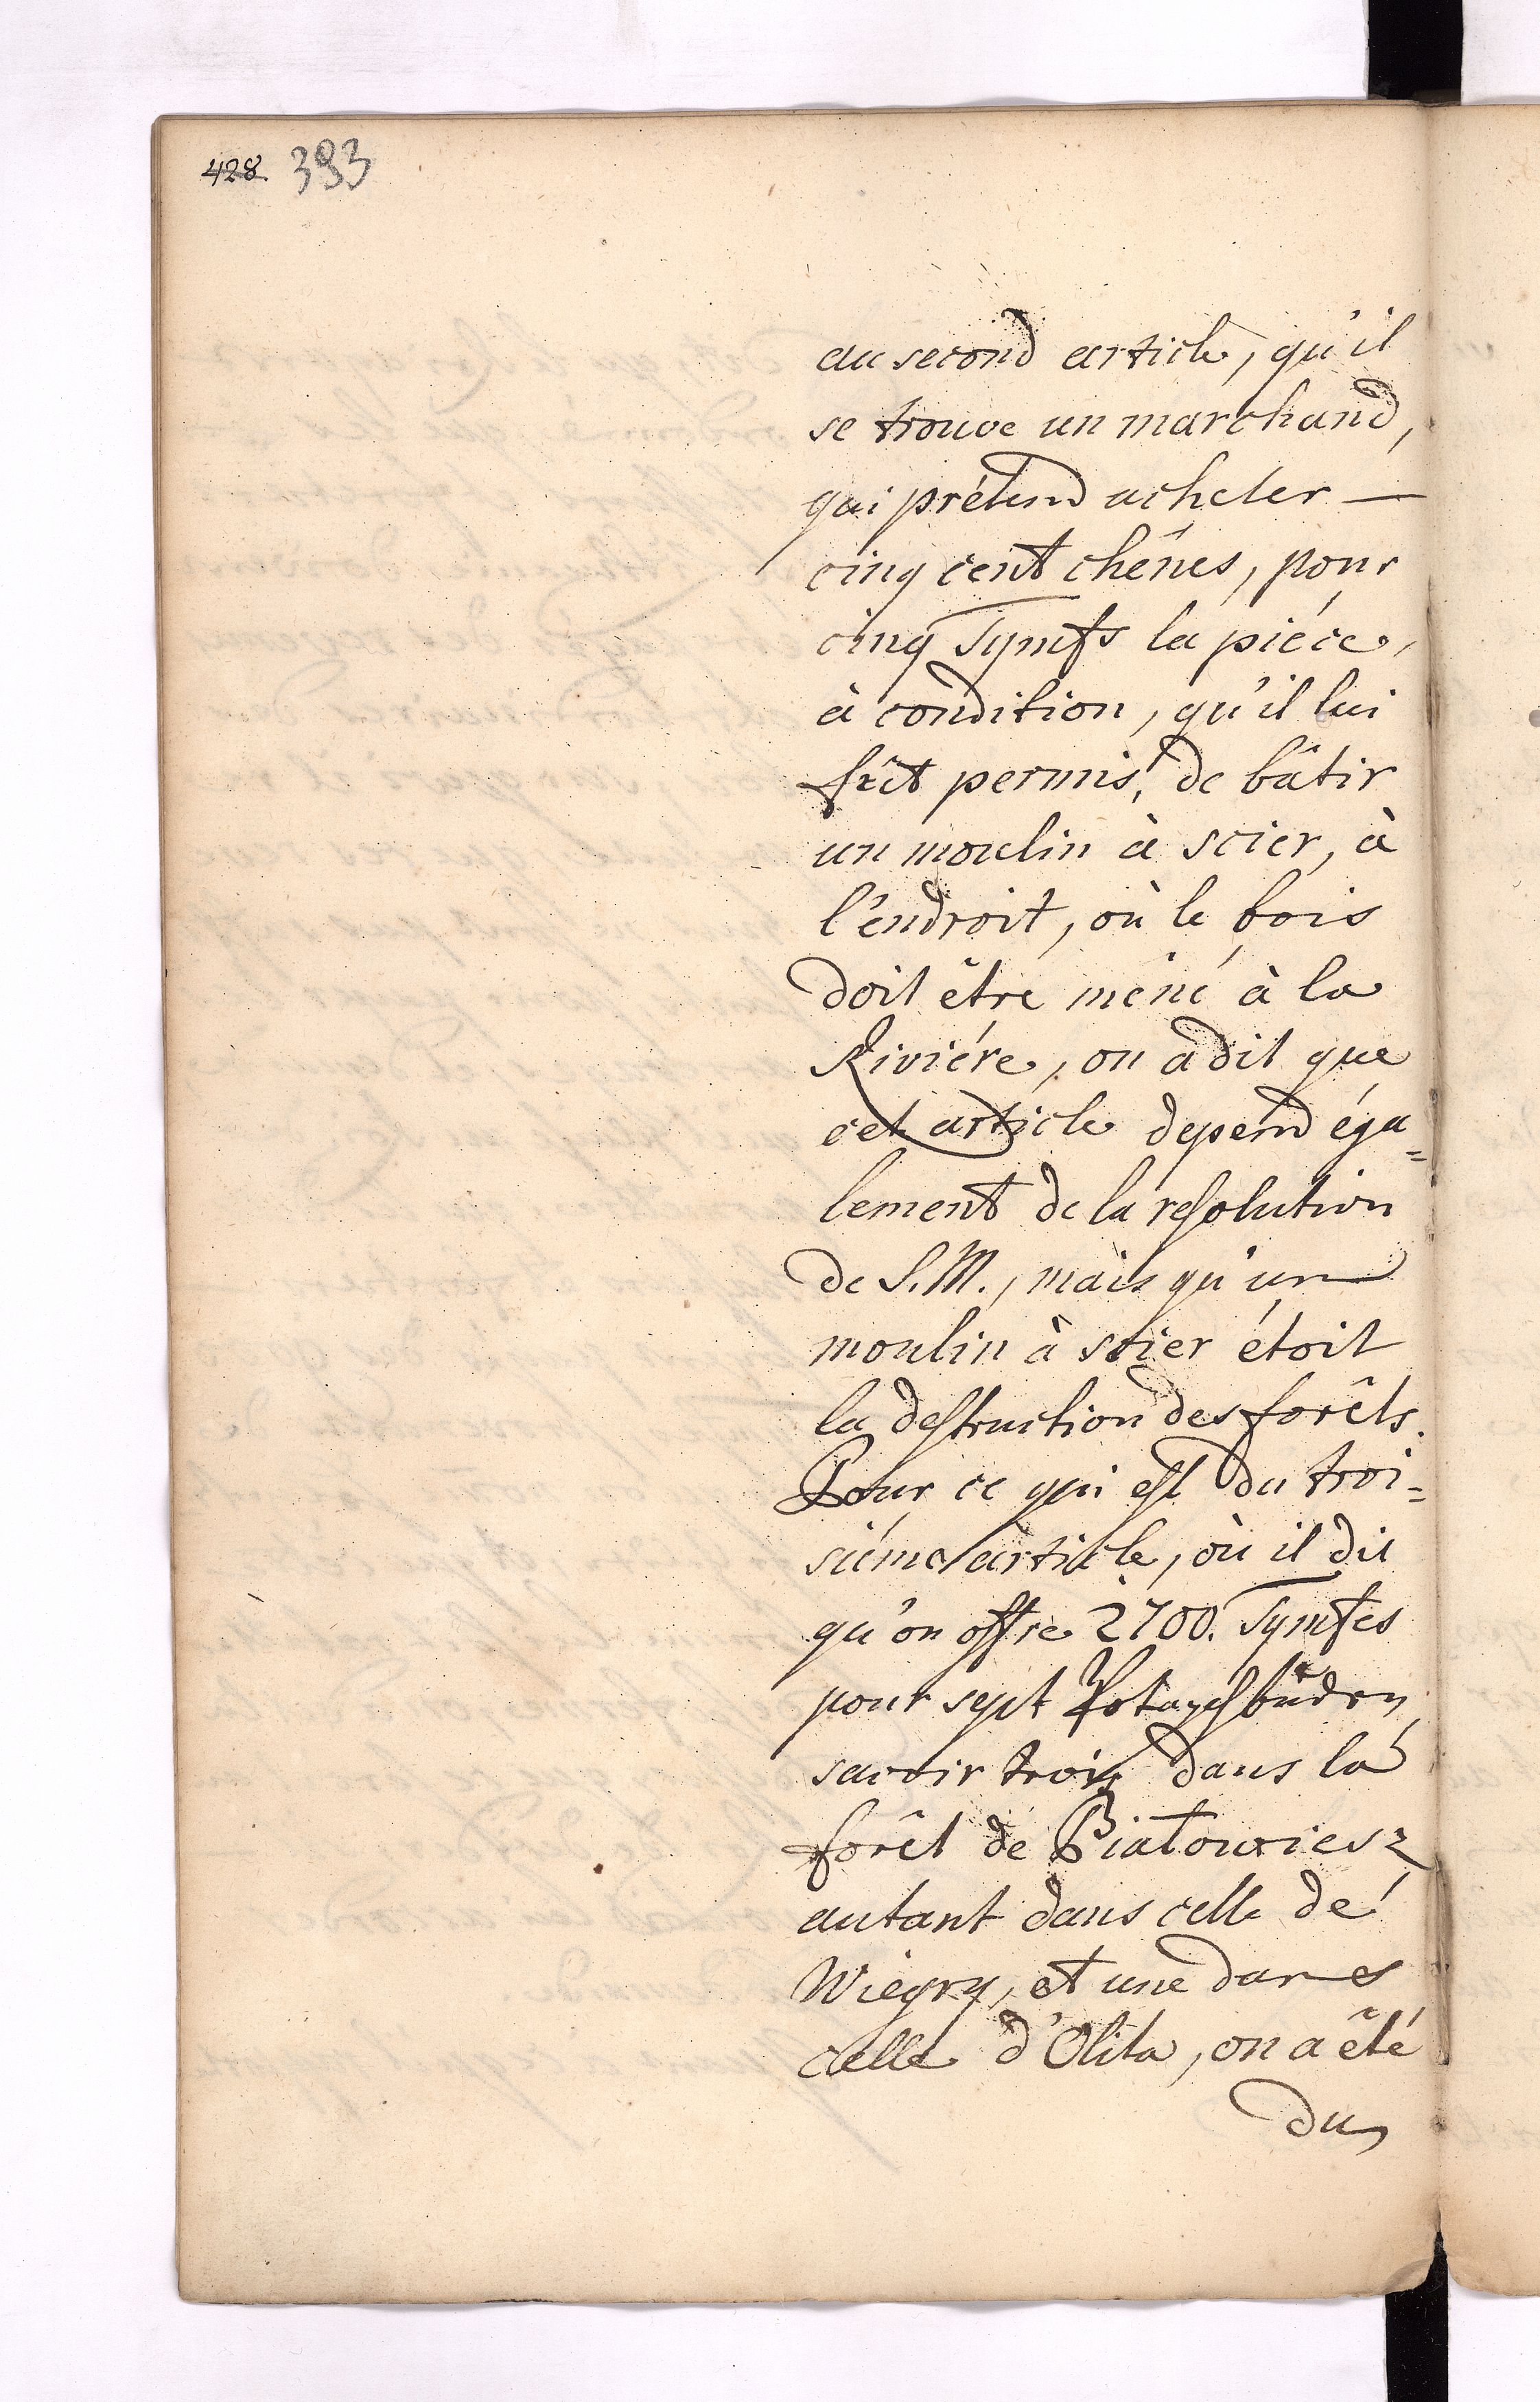 428. 393
au second article, qu'il
se trouve un marchand,
qui prétend acheter —
cinq cent chênes, pour
cinq Tymfs la piéce,
à condition, qu'il lui
fût permis, de bâtir
un moulin à scier, à
l'endroit, où le bois
doit être mené à la
Riviére, on a dit que
cet article depend éga=
lement de la resolution
de S. M., mais qu'un
moulin à scier étoit
la destruction des forêts.
Pour ce qui est du troi=
siéme article, où il dit
qu'on offre 2700. Tymfes
pour sept Potaschbuden,
savoir trois dans la
forêt de Białowiesz
autant dans celle de
Wiegry, et une dans
celle d'Olita, on a été
du